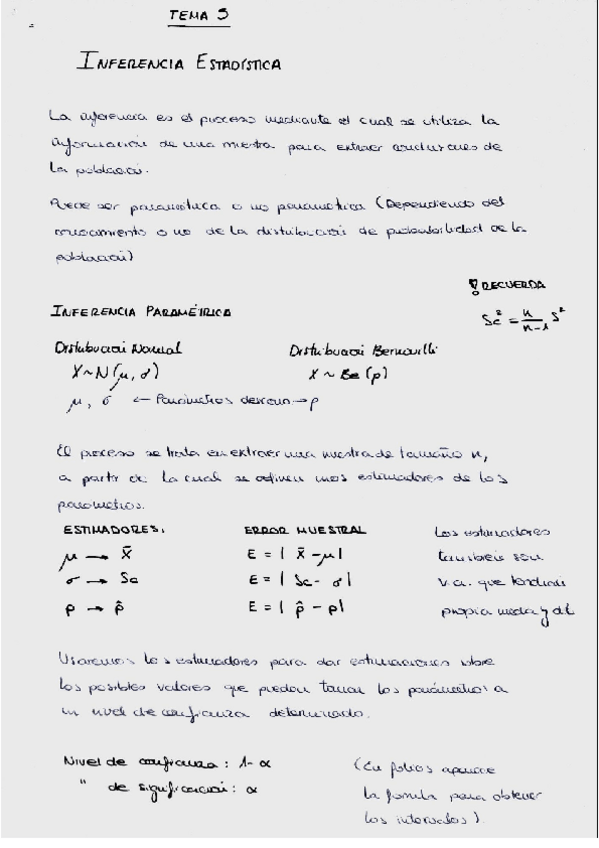 TEMA 5
INFERENCIA ESTADÍSTICA
La inferencia es el proceso mediante el cual se utiliza la
información de una muestra para extraer conclusiones de
la población.
Puede ser paramétrica o no paramétrica (Dependiendo del
conocimiento o no de la distribución de probabilidad de la
población)
! RECUERDA
Sc² = n/(n-1) S²
INFERENCIA PARAMÉTRICA
Distribución Normal Distribución Bernouilli
X~N(μ, σ) X ~ Be(p)
μ, σ ← Parámetros descon. → p
El proceso se trata en extraer una muestra de tamaño n,
a partir de la cual se definen unos estimadores de los
parámetros.
ESTIMADORES: ERROR MUESTRAL Los estimadores
μ → X̄ E = | X̄ - μ | también son
σ → Sc E = | Sc - σ | v.a. que tendrán
p → p̂ E = | p̂ - p | propia media y dt
Usaremos los estimadores para dar estimaciones sobre
los posibles valores que puedan tomar los parámetros a
un nivel de confianza determinado.
Nivel de confianza: 1-α (En folios aparece
" de significación: α la fórmula para obtener
los intervalos).